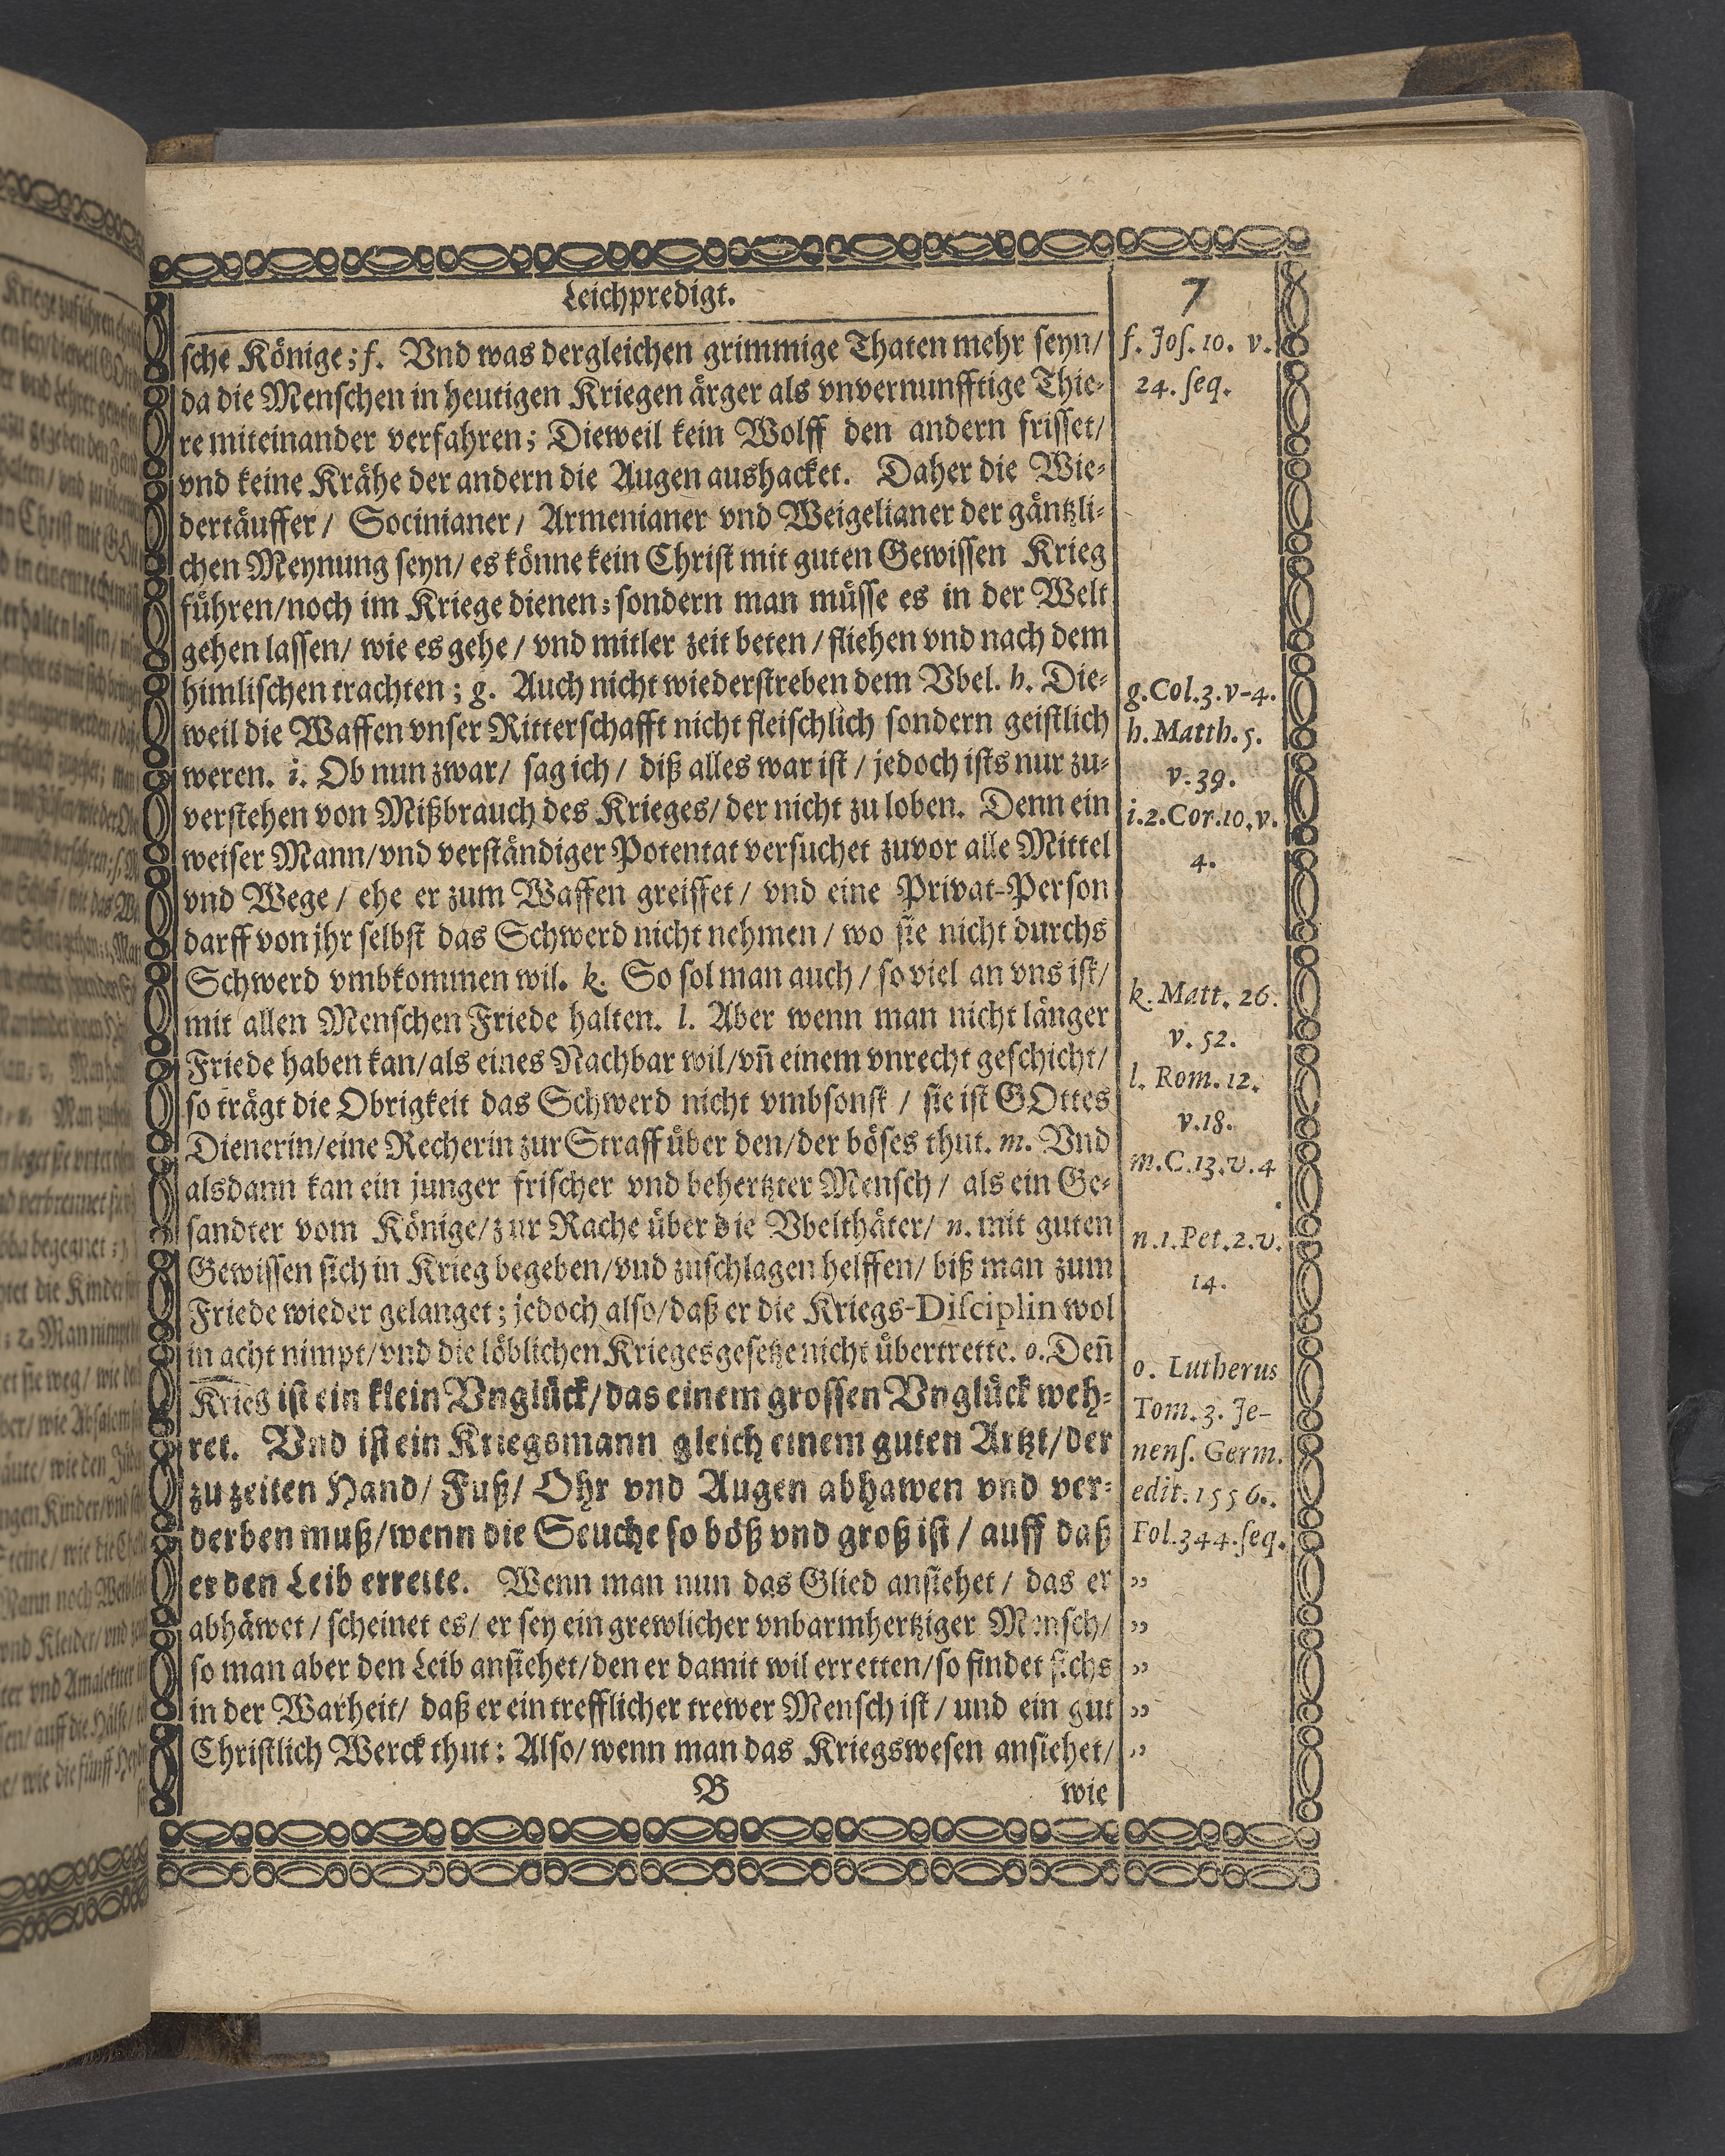 Leichpredigt.
7
ſche Könige; f. Vnd was dergleichen grimmige Thaten mehr ſeyn/
da die Menſchen in heutigen Kriegen ärger als vnvernunfftige Thie-
re miteinander verfahren; Dieweil kein Wolff den andern friſſet/
vnd keine Krähe der andern die Augen aushacket. Daher die Wie-
dertäuffer/ Socinianer/ Armenianer vnd Weigelianer der gäntzli-
chen Meynung ſeyn/ es könne kein Chriſt mit guten Gewiſſen Krieg
führen/noch im Kriege dienen; ſondern man müſſe es in der Welt
gehen laſſen/ wie es gehe/ vnd mitler zeit beten/ fliehen vnd nach dem
himliſchen trachten; g. Auch nicht wiederſtreben dem Vbel. h. Die-
weil die Waffen vnſer Ritterſchafft nicht fleiſchlich ſondern geiſtlich
weren. i. Ob nun zwar/ ſag ich/ diß alles war iſt/ jedoch iſts nur zu-
verſtehen von Mißbrauch des Krieges/ der nicht zu loben. Denn ein
weiſer Mann/vnd verſtändiger Potentat verſuchet zuvor alle Mittel
vnd Wege/ ehe er zum Waffen greiffet/ vnd eine Privat-Perſon
darff von jhr ſelbſt das Schwerd nicht nehmen/ wo ſie nicht durchs
Schwerd vmbkommen wil. k. So ſol man auch/ ſo viel an vns iſt/
mit allen Menſchen Friede halten. l. Aber wenn man nicht länger
Friede haben kan/als eines Nachbar wil/vñ einem vnrecht geſchicht/
ſo trägt die Obrigkeit das Schwerd nicht vmbſonſt/ ſie iſt GOttes
Dienerin/eine Recherin zur Straff über den/der böſes thut. m. Vnd
alsdann kan ein junger friſcher vnd behertzter Menſch/ als ein Ge-
ſandter vom Könige/zur Rache über die Vbelthäter/ n. mit guten
Gewiſſen ſich in Krieg begeben/vnd zuſchlagen helffen/ biß man zum
Friede wieder gelanget; jedoch alſo/daß er die Kriegs-Diſciplin wol
in acht nimpt/vnd die löblichen Kriegesgeſetze nicht übertrette. o. Deñ
Krieg iſt ein klein Vnglück/das einem groſſen Vnglück weh-
ret. Vnd iſt ein Kriegsmann gleich einem guten Artzt/der
zu zeiten Hand/ Fuß/ Ohr vnd Augen abhawen vnd ver-
derben muß/wenn die Seuche ſo böß vnd groß iſt/ auff daß
er den Leib errette. Wenn man nun das Glied anſiehet/ das er
abhäwet/ ſcheinet es/ er ſey ein grewlicher vnbarmhertziger Menſch/
ſo man aber den Leib anſiehet/den er damit wil erretten/ſo findet ſichs
in der Warheit/ daß er ein trefflicher trewer Menſch iſt/ und ein gut
Chriſtlich Werck thut: Alſo/ wenn man das Kriegsweſen anſiehet/
B wie
f. Joſ. 10. v.
24. ſeq.
g. Col. 3. v-4.
h. Matth. 5.
v. 39.
i. 2. Cor. 10. v.
4.
k. Matt. 26.
v. 52.
l. Rom. 12.
v. 18.
m. C. 13. v. 4
.
n. 1. Pet. 2. v.
14.
o. Lutherus
Tom. 3. Je-
nenſ. Germ.
edit. 1556.
Fol. 344. ſeq.
„
„
„
„
„